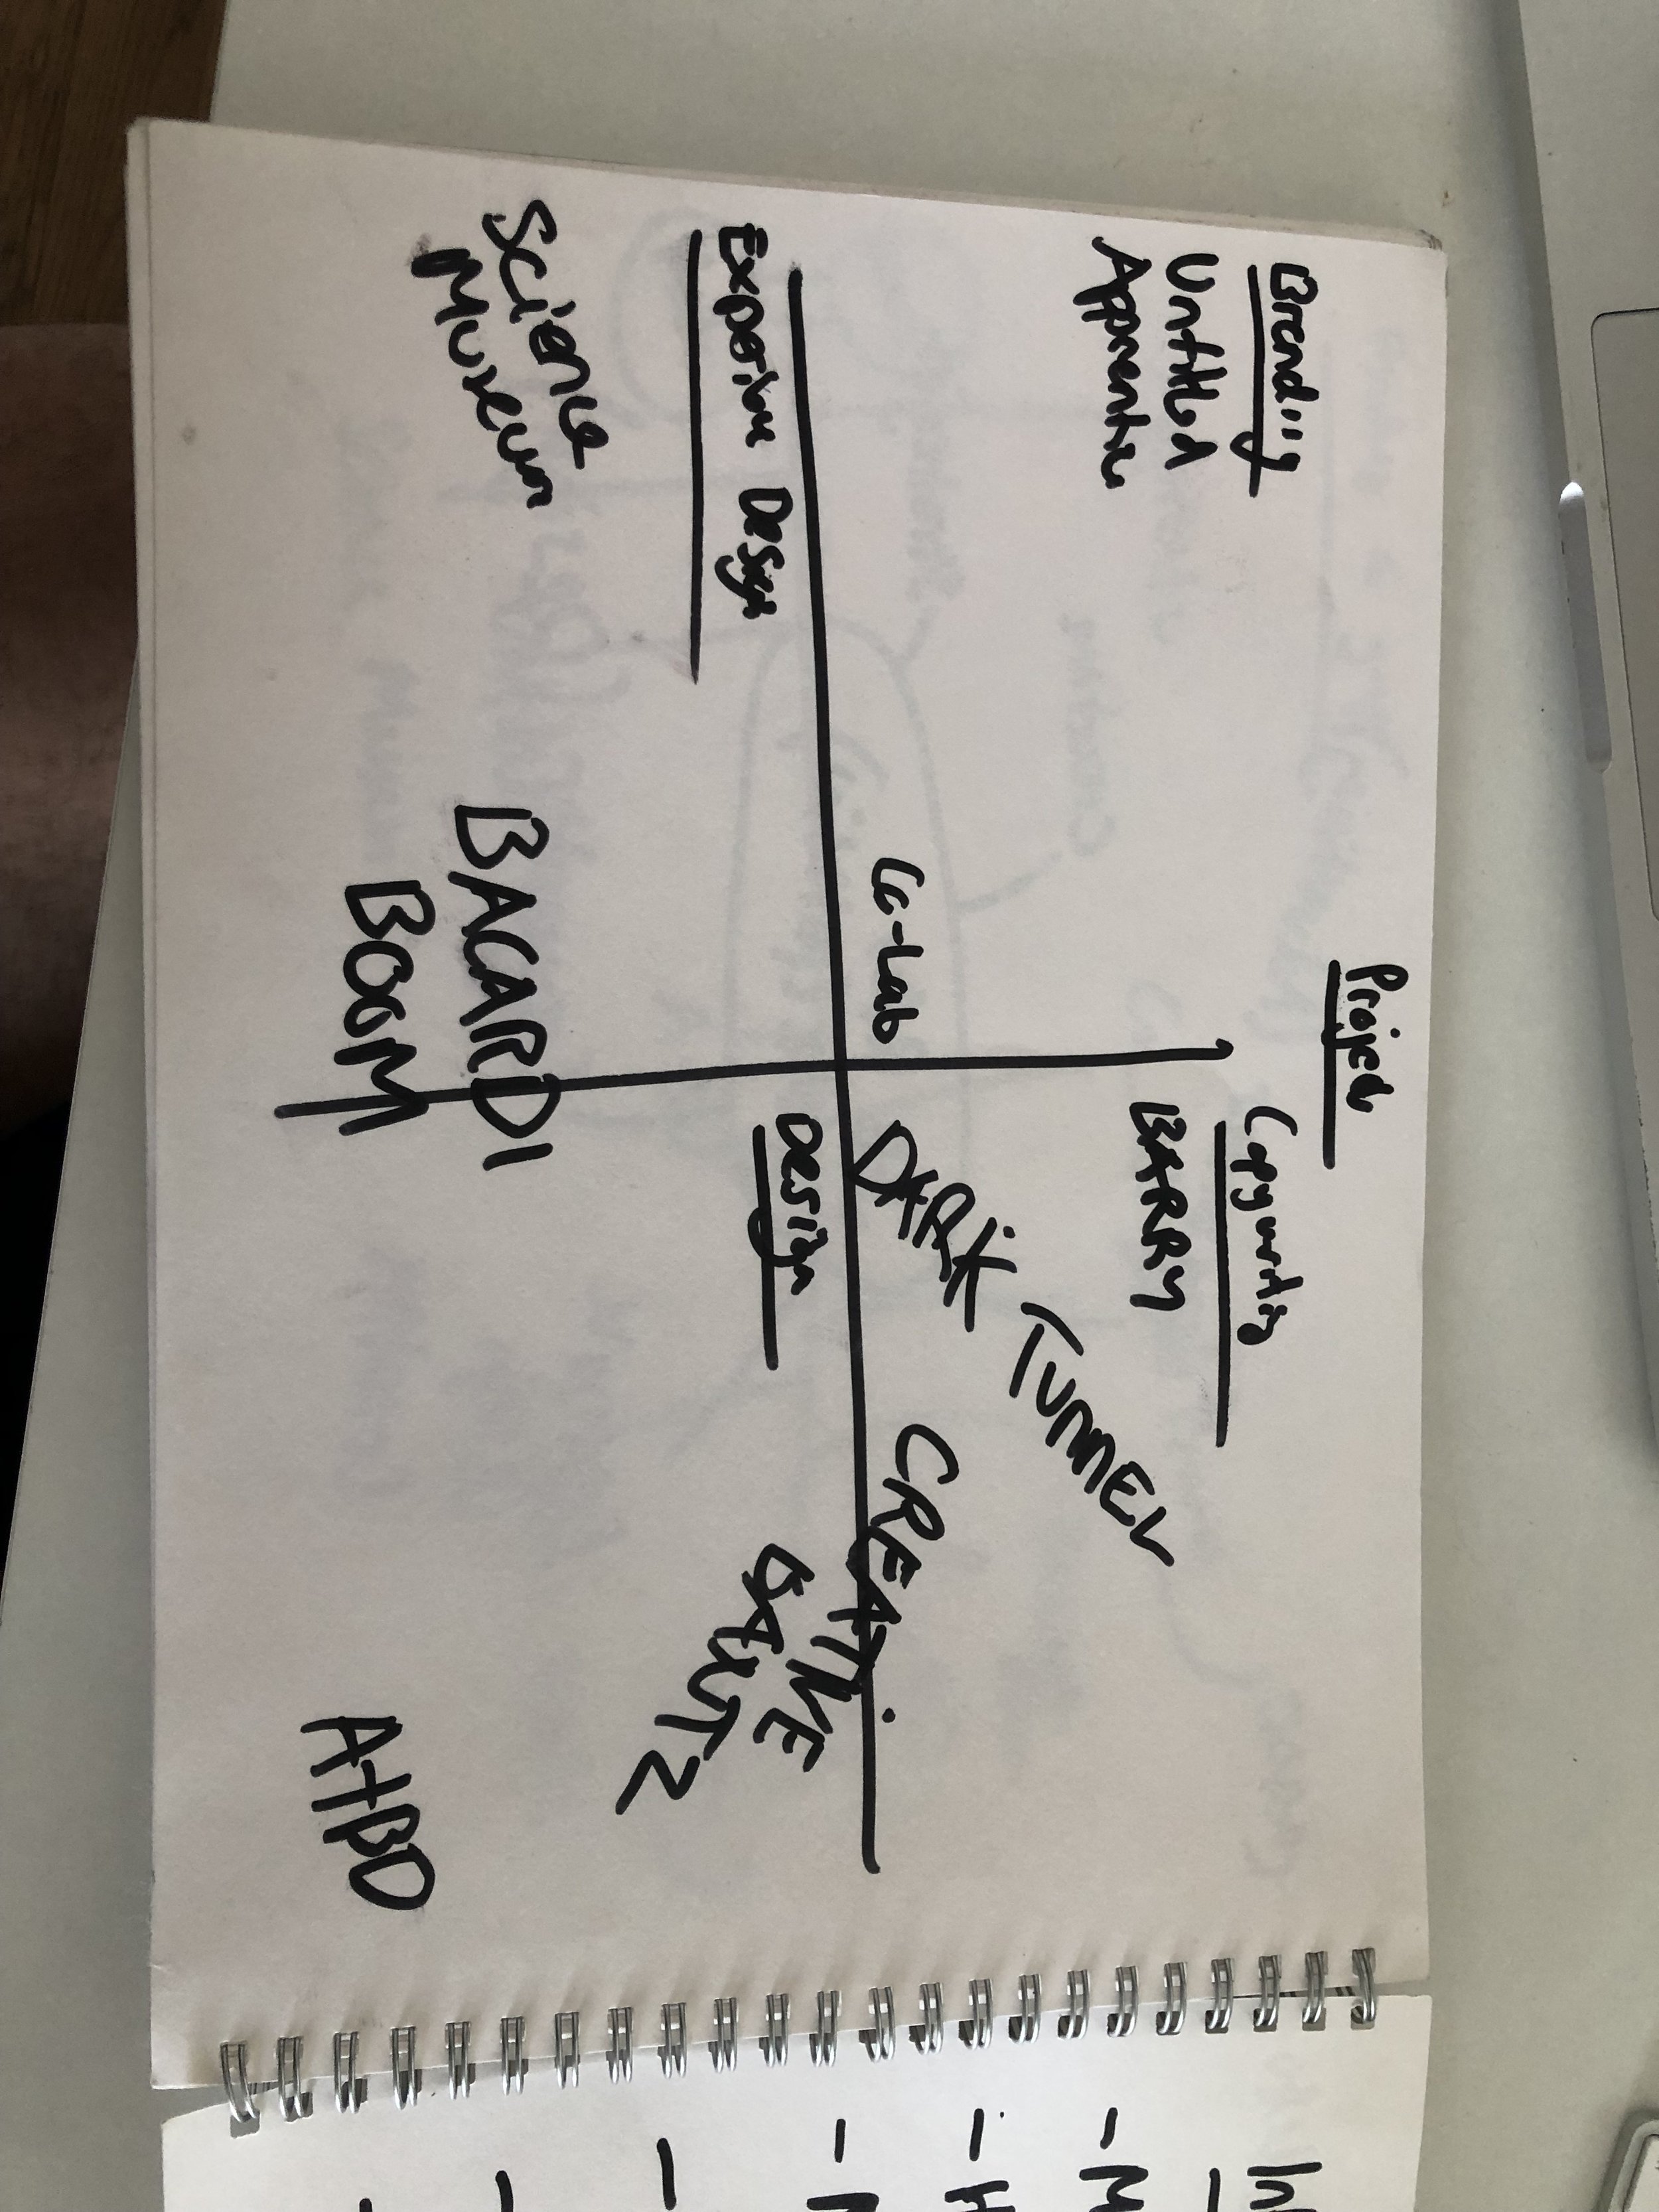 Projects
Branding
Untitled
Copywriting
BARRY
Co-Lab
DARK TUNNEL
CREATIVE
Experience Design
Design
Science
Museum
BACARDI
BOOM